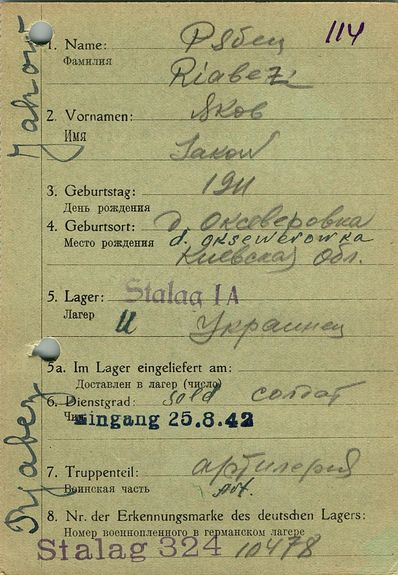 114
1. Name: Рябец
Фамилия
Riabez
2. Vornamen: Яков
Имя
Jakow
3. Geburtstag: 1911
День рождения
4. Geburtsort: д. Оксеверовка
Место рождения d. Oksewerowka
Киевская обл.
5. Lager: Stalag IA
Лагер U Украинец
5a. Im Lager eingeliefert am:
Доставлен в лагер (число)
6. Dienstgrad: Sold солдат
Чин
Eingang 25.8.42
7. Truppenteil: артилерия
Воинская часть Art.
8. Nr. der Erkennungsmarke des deutschen Lagers:
Номер военнопленного в германском лагере
Stalag 324 10478
Jakow
Rjabez